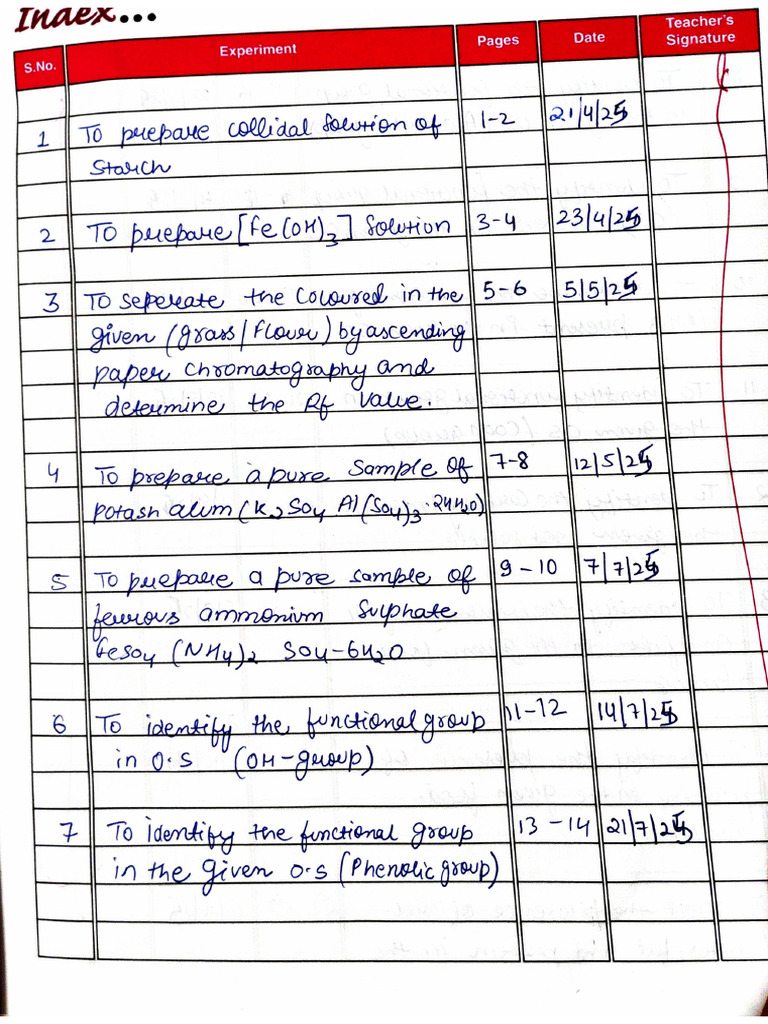 Index...
S.No. Experiment Pages Date Teacher's Signature
1 To prepare collidal Solution of 1-2 21/4/25
Starch
2 To prepare [Fe(OH)3] Solution 3-4 23/4/25
3 To seperate the Coloured in the 5-6 5/5/25
given (grass/flour) by ascending
paper chromatography and
determine the Rf value.
4 To prepare a pure Sample of 7-8 12/5/25
potash alum (K2SO4 Al(SO4)3.24H2O)
5 To prepare a pure sample of 9-10 7/7/25
ferrous ammonium Sulphate
FeSO4 (NH4)2 SO4-6H2O
6 To identify the functional group 11-12 14/7/25
in O.S (OH-group)
7 To identify the functional group 13-14 21/7/25
in the given O.S (Phenolic group)